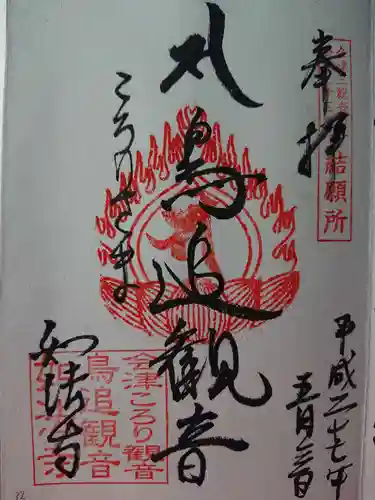 奉拝
結願所
鳥追観音
ころりさま
平成二十七年
五月三日
如法寺
会津ころり観音
鳥追観音
如法寺
32